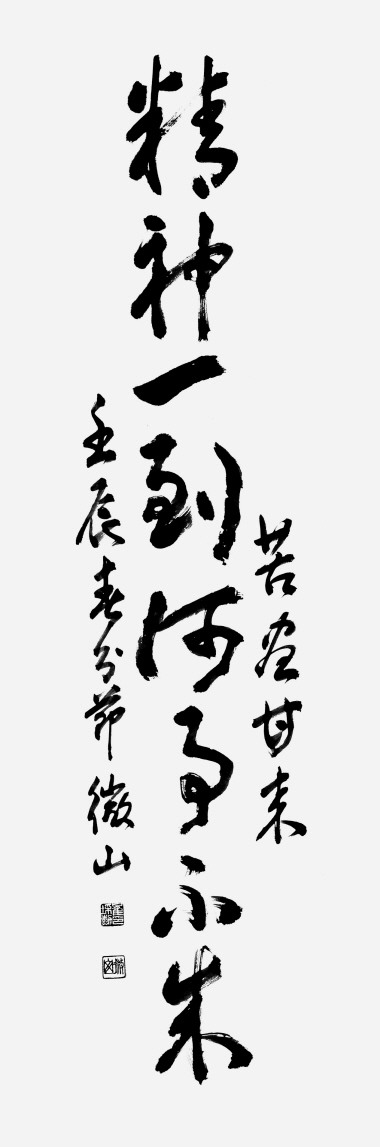 苦盡甘来
精神一到何事不成
壬辰春分節 微山